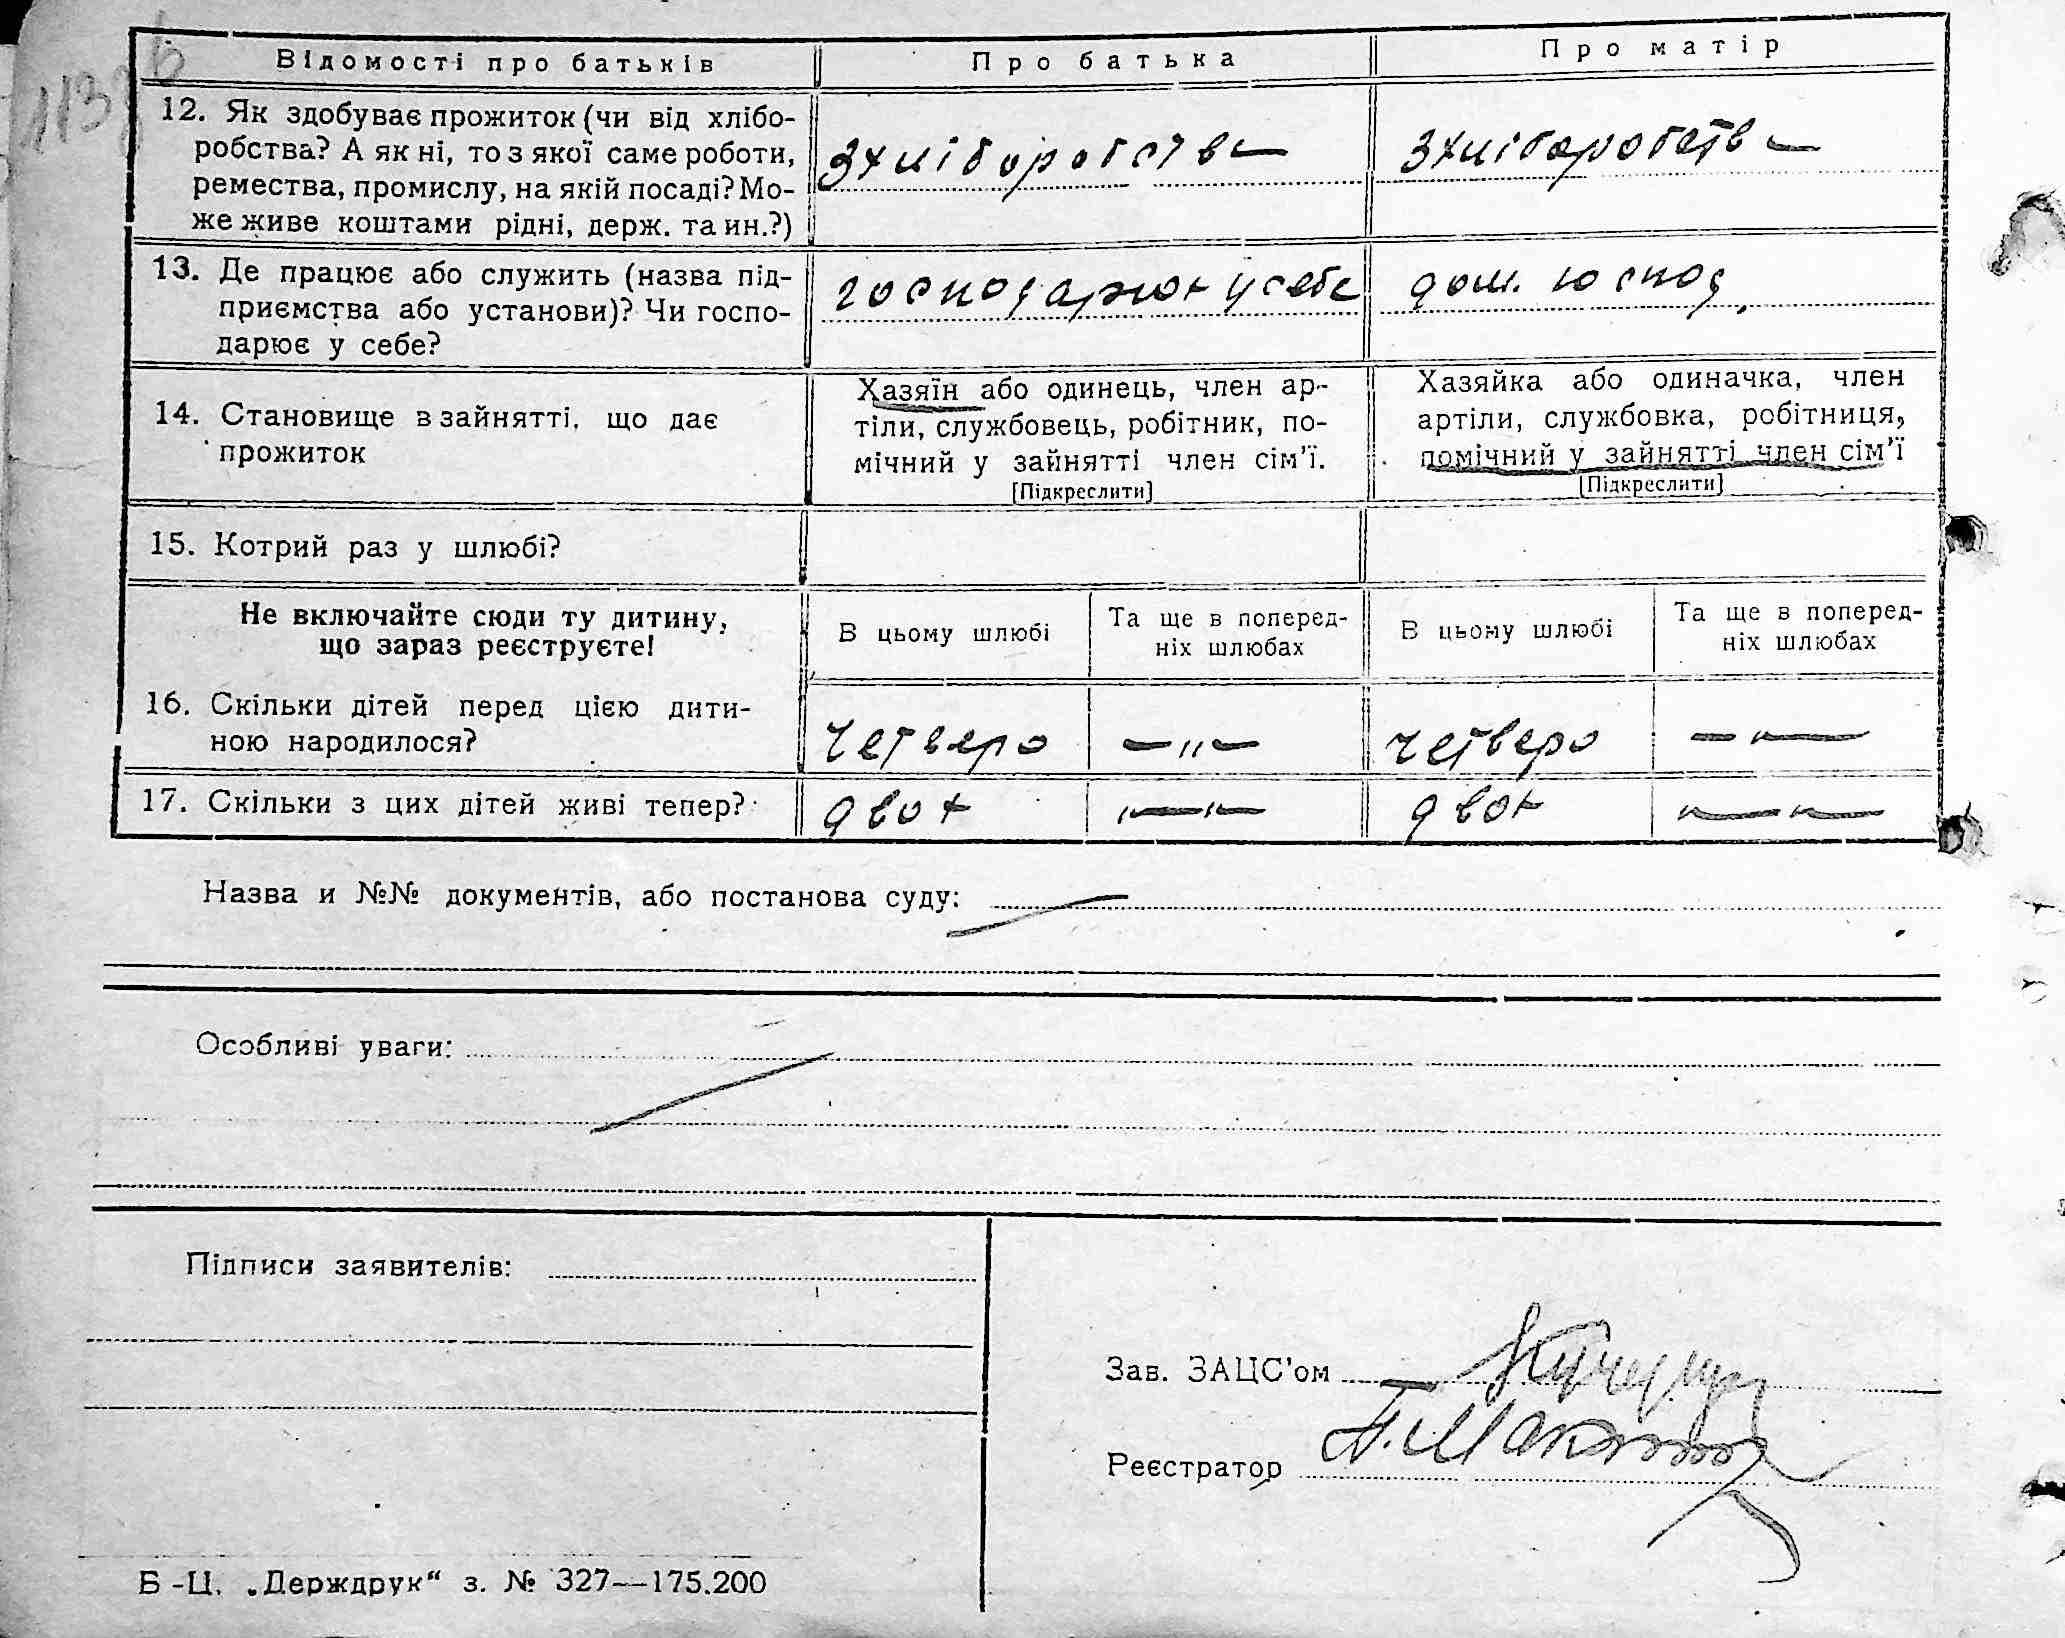 Відомості про батьків Про батька Про матір
12. Як здобуває прожиток (чи від хлібо-
робства? А як ні, то з якої саме роботи,
ремества, промислу, на якій посаді? Мо-
же живе коштами рідні, держ. та ин.?)
з хліборобства з хліборобства
13. Де працює або служить (назва під-
приємства або установи)? Чи госпо-
дарює у себе?
господарює у себе дом. господ.
14. Становище в зайнятті, що дає
прожиток
Хазяїн або одинець, член ар-
тіли, службовець, робітник, по-
мічний у зайнятті член сім'ї.
[Підкреслити]
Хазяйка або одиначка, член
артіли, службовка, робітниця,
помічний у зайнятті член сім'ї
[Підкреслити]
15. Котрий раз у шлюбі?
Не включайте сюди ту дитину,
що зараз реєструєте!
В цьому шлюбі
Та ще в поперед-
ніх шлюбах
В цьому шлюбі
Та ще в поперед-
ніх шлюбах
16. Скільки дітей перед цією дити-
ною народилося?
четверо — „ — четверо — „ —
17. Скільки з цих дітей живі тепер?
двох „ — „ — двох „ — „ —
Назва и №№ документів, або постанова суду:
Особливі уваги:
Підписи заявителів:
Зав. ЗАЦС'ом
Реєстратор
Б-Ц. „Держдрук“ з. № 327—175.200